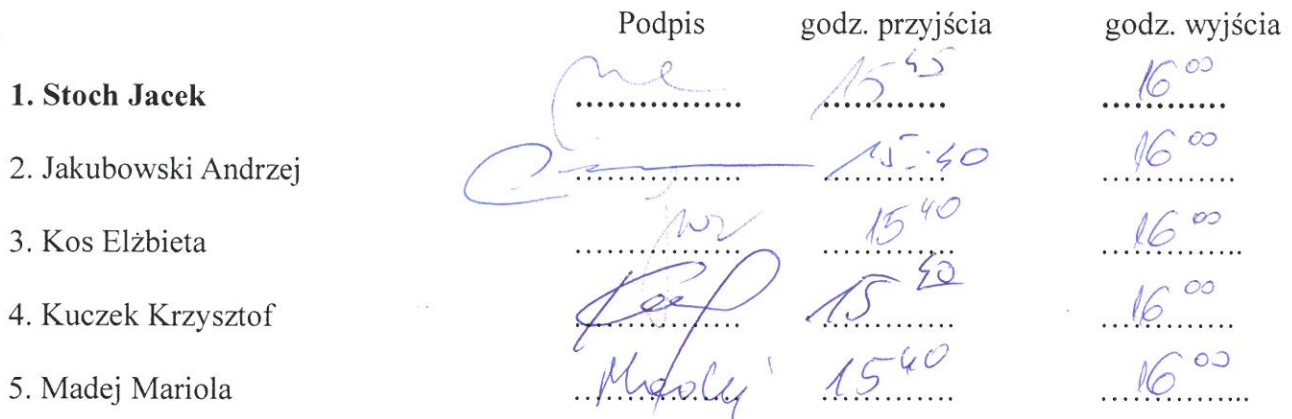 Podpis godz. przyjścia godz. wyjścia
1. Stoch Jacek .............. 15 45 16 00
2. Jakubowski Andrzej .............. 15:40 16 00
3. Kos Elżbieta .............. 15 40 16 00
4. Kuczek Krzysztof .............. 15 40 16 00
5. Madej Mariola Madej 15 40 16 00